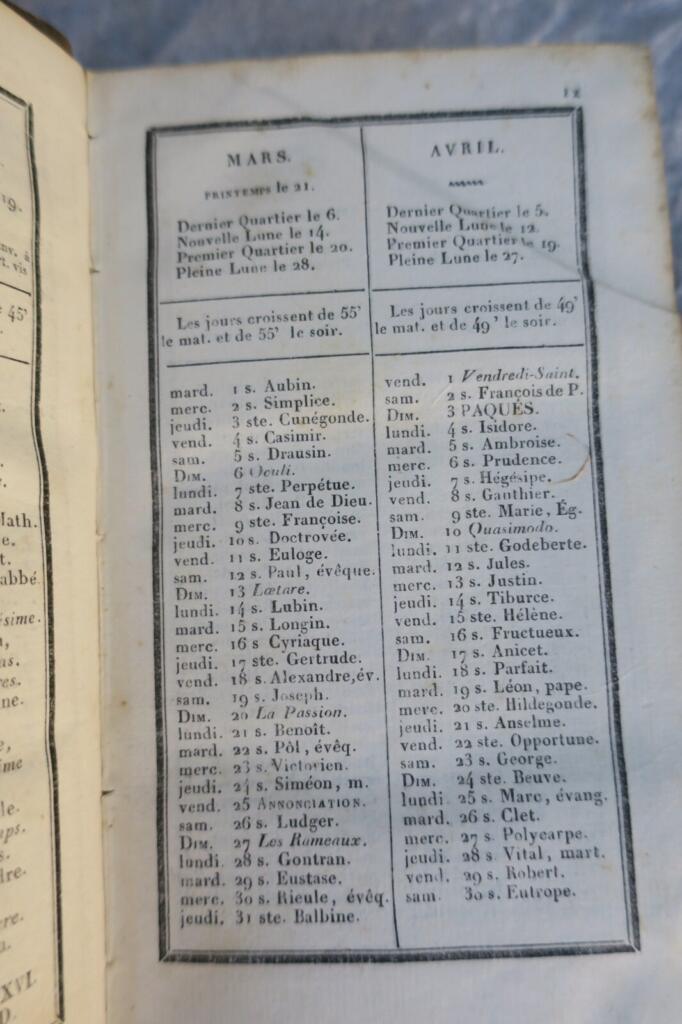 12
MARS.
PRINTEMPS le 21.
Dernier Quartier le 6.
Nouvelle Lune le 14.
Premier Quartier le 20.
Pleine Lune le 28.
Les jours croissent de 55'
le mat. et de 55' le soir.
mard. 1 s. Aubin.
merc. 2 s. Simplice.
jeudi. 3 ste. Cunégonde.
vend. 4 s. Casimir.
sam. 5 s. Drausin.
DIM. 6 Oculi.
lundi. 7 ste. Perpétue.
mard. 8 s. Jean de Dieu.
merc. 9 ste. Françoise.
jeudi. 10 s. Doctrovée.
vend. 11 s. Euloge.
sam. 12 s. Paul, évêque.
DIM. 13 Lætare.
lundi. 14 s. Lubin.
mard. 15 s. Longin.
merc. 16 s Cyriaque.
jeudi. 17 ste. Gertrude.
vend. 18 s. Alexandre, év.
sam. 19 s. Joseph.
DIM. 20 La Passion.
lundi. 21 s. Benoît.
mard. 22 s. Pôl, évêq.
merc. 23 s. Victorien.
jeudi. 24 s. Siméon, m.
vend. 25 ANNONCIATION.
sam. 26 s. Ludger.
DIM. 27 Les Rameaux.
lundi. 28 s. Gontran.
mard. 29 s. Eustase.
merc. 30 s. Rieule, évêq.
jeudi. 31 ste. Balbine.
AVRIL.
Dernier Quartier le 5.
Nouvelle Lune le 12.
Premier Quartier le 19.
Pleine Lune le 27.
Les jours croissent de 49'
le mat. et de 49' le soir.
vend. 1 Vendredi-Saint.
sam. 2 s. François de P.
DIM. 3 PAQUES.
lundi. 4 s. Isidore.
mard. 5 s. Ambroise.
merc. 6 s. Prudence.
jeudi. 7 s. Hégésipe.
vend. 8 s. Gauthier.
sam. 9 ste. Marie, Ég.
DIM. 10 Quasimodo.
lundi. 11 ste. Godeberte.
mard. 12 s. Jules.
merc. 13 s. Justin.
jeudi. 14 s. Tiburce.
vend. 15 ste. Hélène.
sam. 16 s. Fructueux.
DIM. 17 s. Anicet.
lundi. 18 s. Parfait.
mard. 19 s. Léon, pape.
merc. 20 ste. Hildegonde.
jeudi. 21 s. Anselme.
vend. 22 ste. Opportune.
sam. 23 s. George.
DIM. 24 ste. Beuve.
lundi 25 s. Marc, évang.
mard. 26 s. Clet.
merc. 27 s. Polycarpe.
jeudi. 28 s. Vital, mart.
vend. 29 s. Robert.
sam. 30 s. Eutrope.